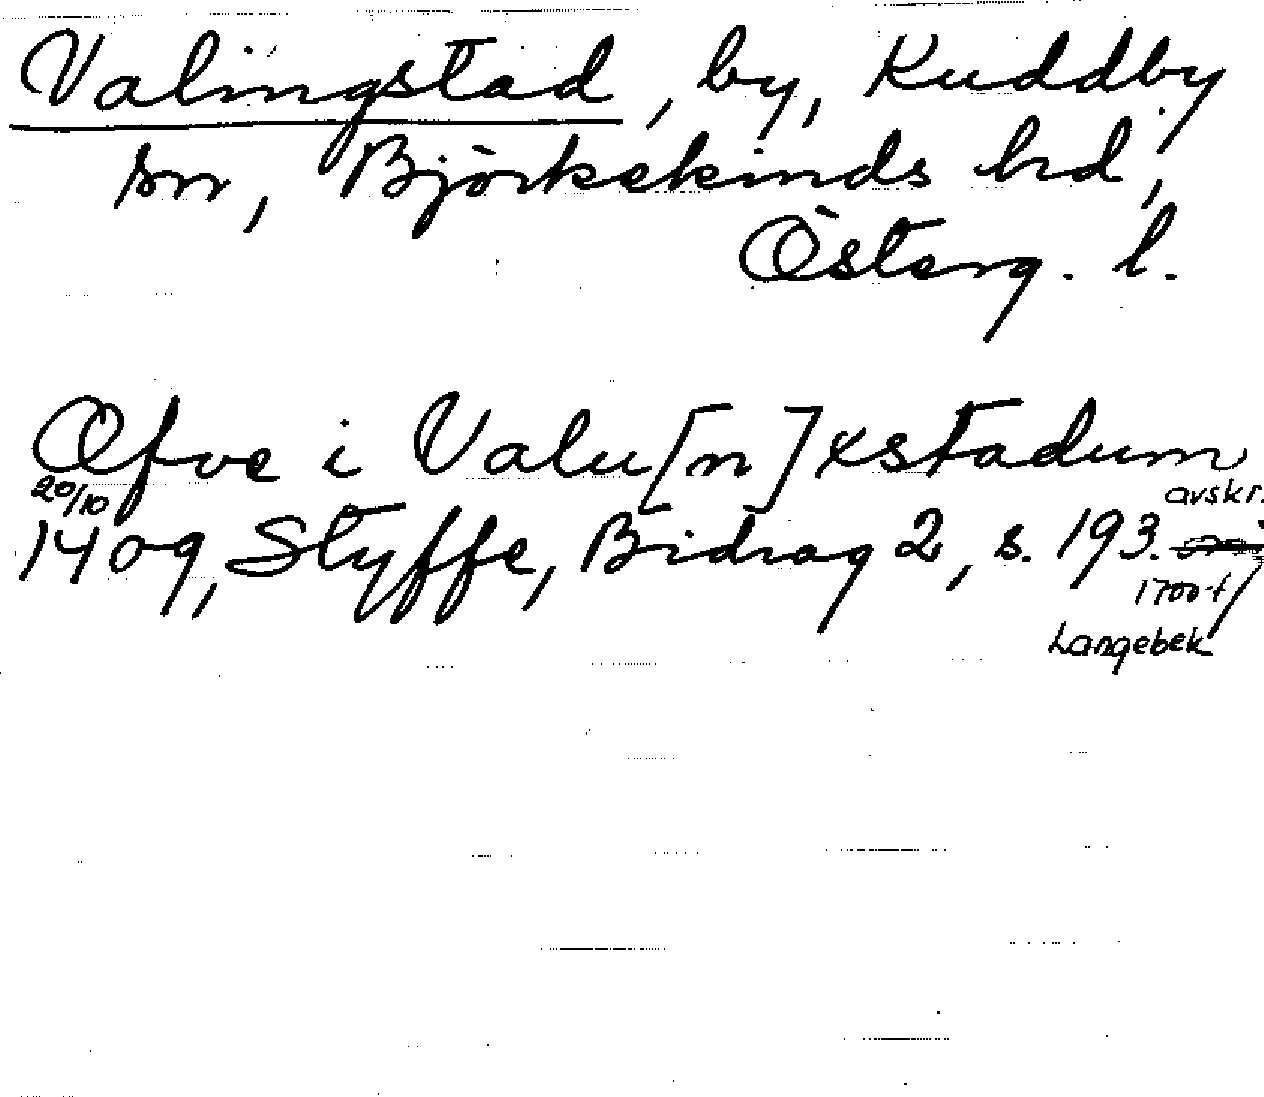 Valingstad, by, Kuddby
sn, Björkekinds hd,
Österg. l.
Øfve i Valu[n]xstadum
20/10 1409, Styffe, Bidrag 2, s. 193. avskr.
1700-t
Langebek